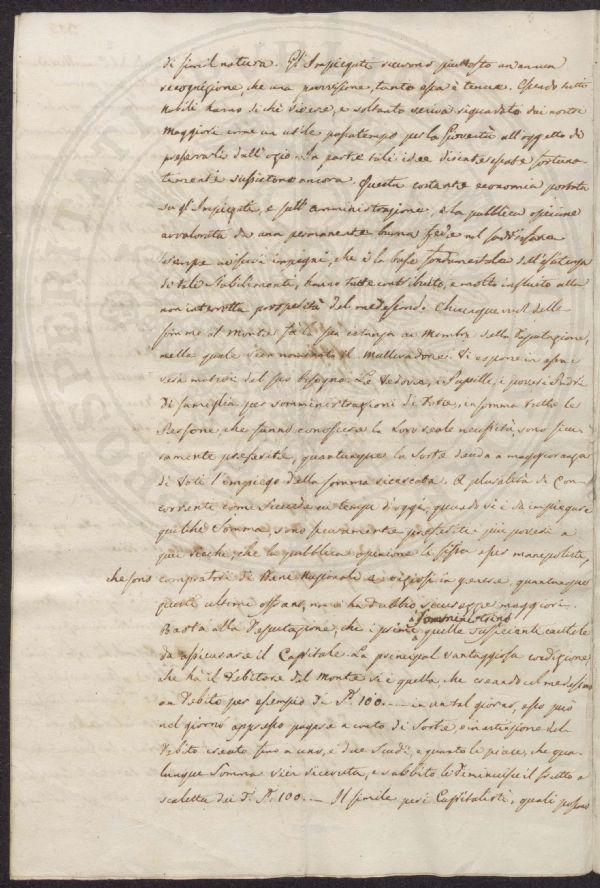 di simil natura. Gl' Impiegati ricevono piuttosto un annua
recognizione, che una provvisione, tanto essa è tenue. Essendo tutti
Nobili hanno di chè vivere, e soltanto veniva riguardato dai nostri
Maggiori come un utile passatempo per la Gioventù all'oggetto di
preservarli dall'ozio. In parte tali idee
sussistono ancora. Questa costante economia portata
su gl' Impiegati, e sull' amministrazione, e la pubblica opinione
avvalorata da una permanente buona fede nel soddisfare
sempre ai suoi impegni, che è la base fondamentale dell'esistenza
di tale Stabilimento, hanno tutte contribuito, e molto influito alla
non interrotta prosperità del medesimo. Chiunque vuol delle
somme al Monte fa la sua istanza ai Membri della Deputazione,
nella quale vien nominato il Mallevadore. Si espone in essa i
veri motivi del suo bisogno. Le Vedove, i Pupilli, i poveri Padri
di famiglia per somministrazioni di Dote, insomma tutte le
Persone, che fanno conoscere la loro reale necessità, sono sicu-
ramente preferite, quantunque la Sorte decida a maggioranza
di Voti l'impiego della somma ricercata. A pluralità di Con-
correnti come succede in tempi d'oggi, quando vi è da impiegare
qualche Somma, sono sicuramente preferiti i più poveri a
quei ricchi, che la pubblica opinione li fissa esser manipolati,
che sono compratori di Beni Nazionali e
questi ultimi offrano, non ha dubbio, sicurezze maggiori.
somministrino
Basta alla Deputazione, che i primi quelle sufficienti cautele
da assicurare il Capitale. La principal vantaggiosa condizione
che ha il Debitore del Monte si è quella, che creando il medesimo
un Debito per esempio di 100. — in un tal giorno, esso può
nel giorno appresso pagare a conto di Sorte, e in estinzione del
Debito creato sino a uno, e due Scudi, e quanto le piace, che qua-
lunque Somma vien ricevuta, e subbito le diminuisce il frutto a
scaletta dei 100. — Il simile per i Capitalisti, quali possono